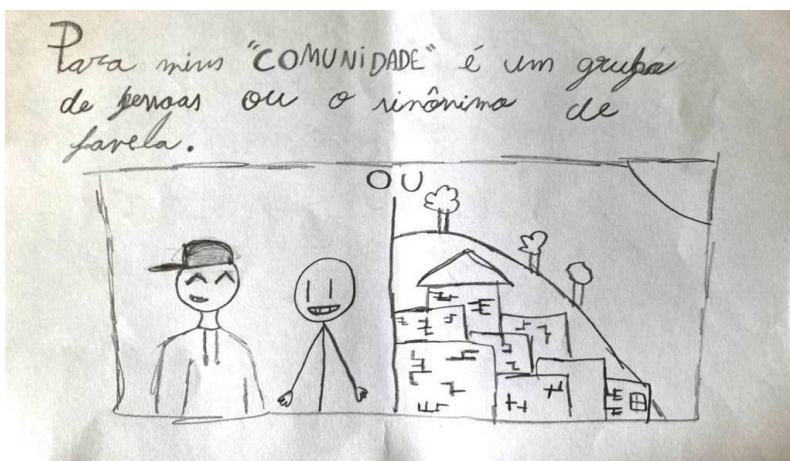 Para mim "COMUNIDADE" é um grupo
de pessoas ou o sinônimo de
favela.
OU